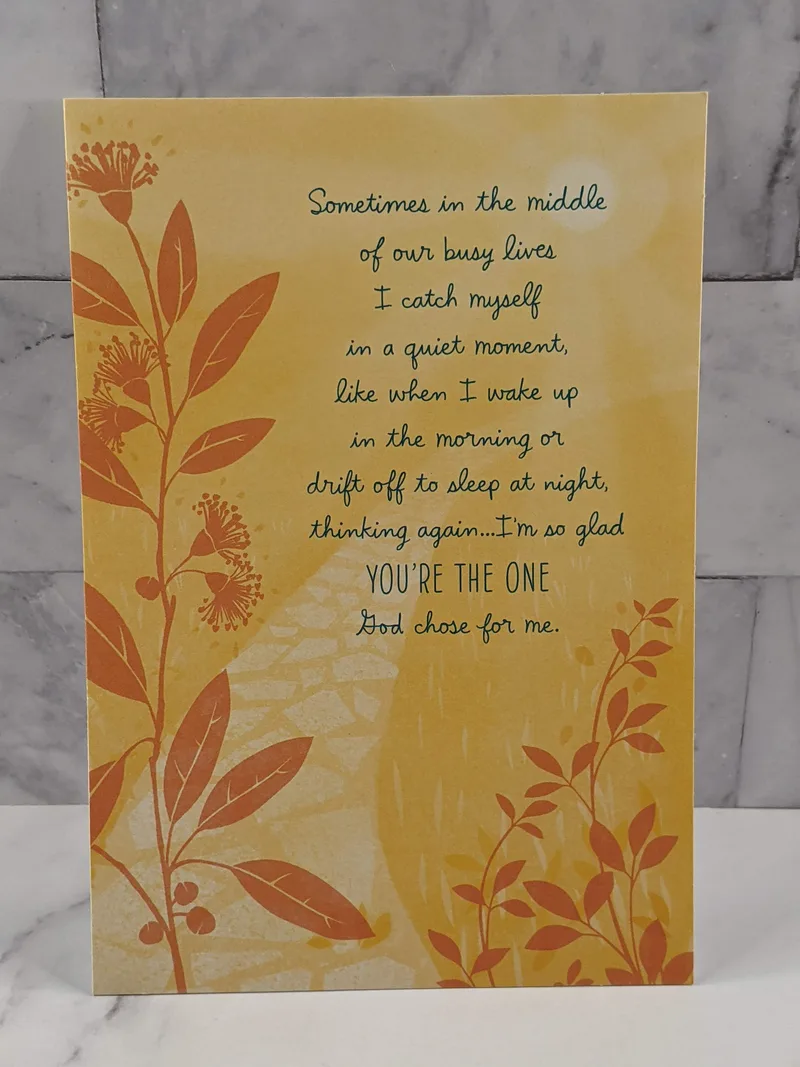 Sometimes in the middle
of our busy lives
I catch myself
in a quiet moment,
like when I wake up
in the morning or
drift off to sleep at night,
thinking again...I'm so glad
YOU'RE THE ONE
God chose for me.